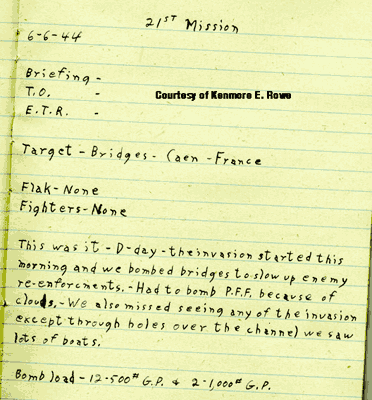 21ST Mission
6-6-44
Briefing -
T.O. -
Courtesy of Kenmore E. Rowe
E.T.R. -
Target - Bridges - Caen - France
Flak - None
Fighters - None
This was it - D-day - the invasion started this
morning and we bombed bridges to slow up enemy
re-enforcments. - Had to bomb P.F.F. because of
clouds. - We also missed seeing any of the invasion
except through holes over the channel we saw
lots of boats.
Bomb load - 12-500# G.P. & 2-1,000# G.P.